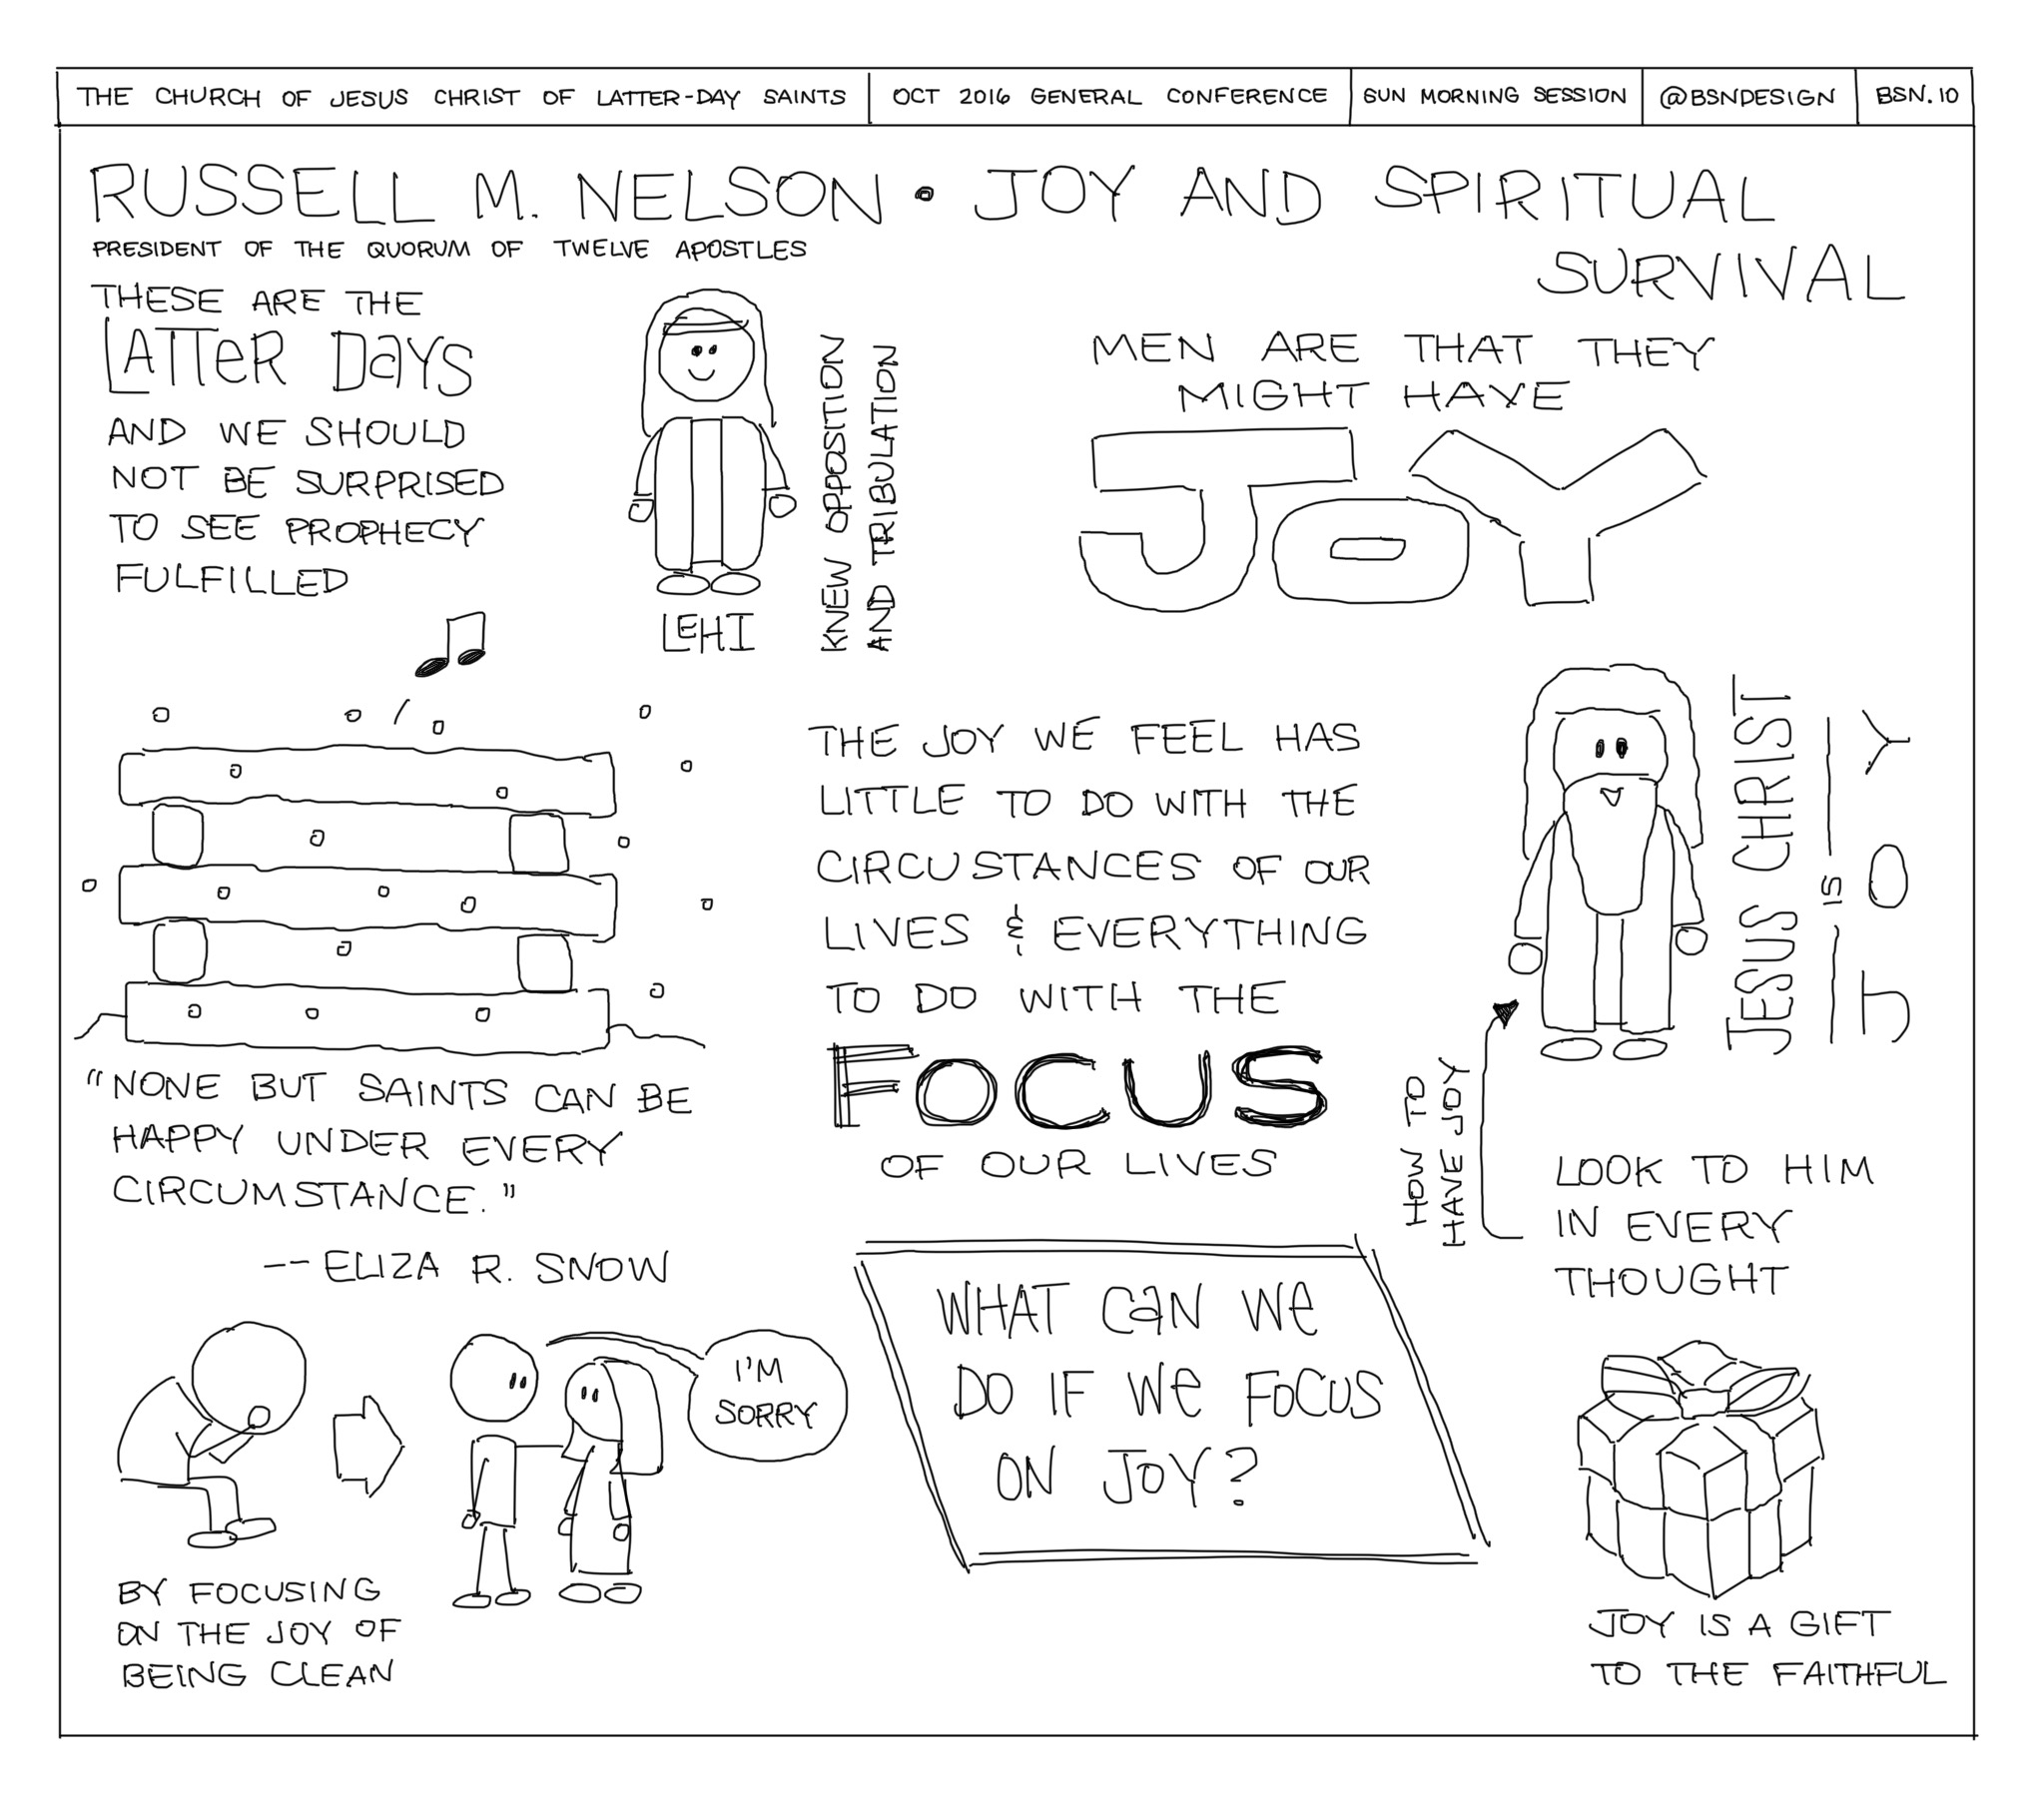 THE CHURCH OF JESUS CHRIST OF LATTER-DAY SAINTS
OCT 2016 GENERAL CONFERENCE
SUN MORNING SESSION
@BSNDESIGN
BSN.10
RUSSELL M. NELSON • JOY AND SPIRITUAL
SURVIVAL
PRESIDENT OF THE QUORUM OF TWELVE APOSTLES
THESE ARE THE
LATTER DAYS
AND WE SHOULD
NOT BE SURPRISED
TO SEE PROPHECY
FULFILLED
LEHI
KNEW OPPOSITION
AND TRIBULATION
MEN ARE THAT THEY
MIGHT HAVE
JOY
"NONE BUT SAINTS CAN BE
HAPPY UNDER EVERY
CIRCUMSTANCE."
-- ELIZA R. SNOW
THE JOY WE FEEL HAS
LITTLE TO DO WITH THE
CIRCUSTANCES OF OUR
LIVES & EVERYTHING
TO DO WITH THE
FOCUS
OF OUR LIVES
JESUS CHRIST
IS
JOY
HOW TO
HAVE JOY
LOOK TO HIM
IN EVERY
THOUGHT
I'M
SORRY
BY FOCUSING
ON THE JOY OF
BEING CLEAN
WHAT CAN WE
DO IF WE FOCUS
ON JOY?
JOY IS A GIFT
TO THE FAITHFUL